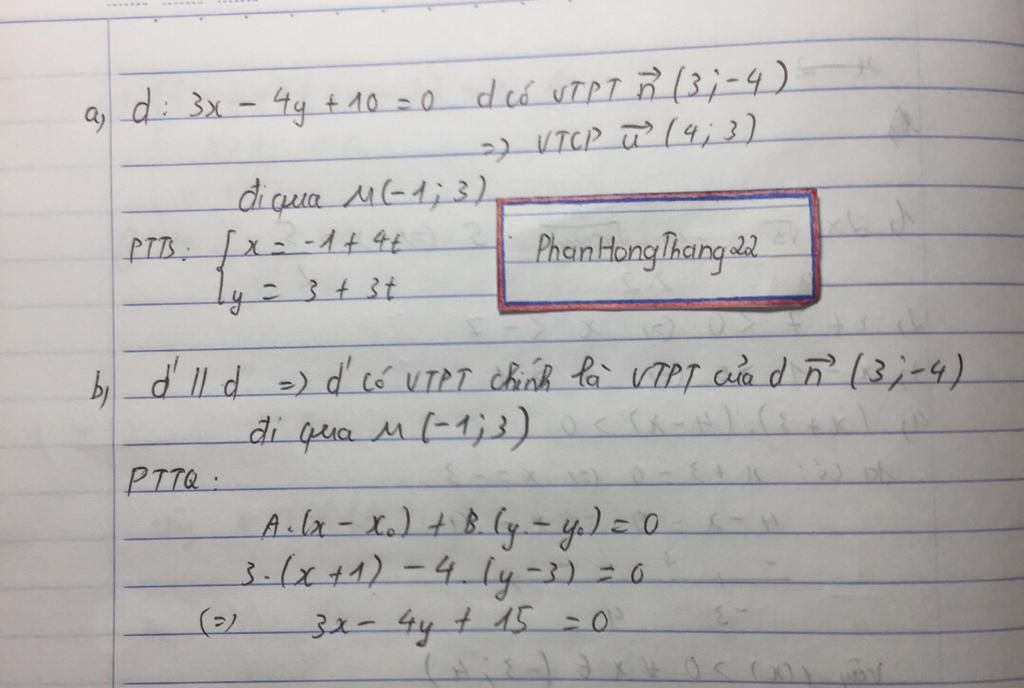 a) d: 3x - 4y + 10 = 0 d có VTPT n→ (3;-4)
=> VTCP u→ (4;3)
đi qua M(-1;3)
PTTS: { x = -1 + 4t
y = 3 + 3t
PhanHongThang22
b) d' // d => d' có VTPT chính là VTPT của d n→ (3;-4)
đi qua M(-1;3)
PTTQ:
A.(x - x₀) + B.(y - y₀) = 0
3.(x + 1) - 4.(y - 3) = 0
(=) 3x - 4y + 15 = 0